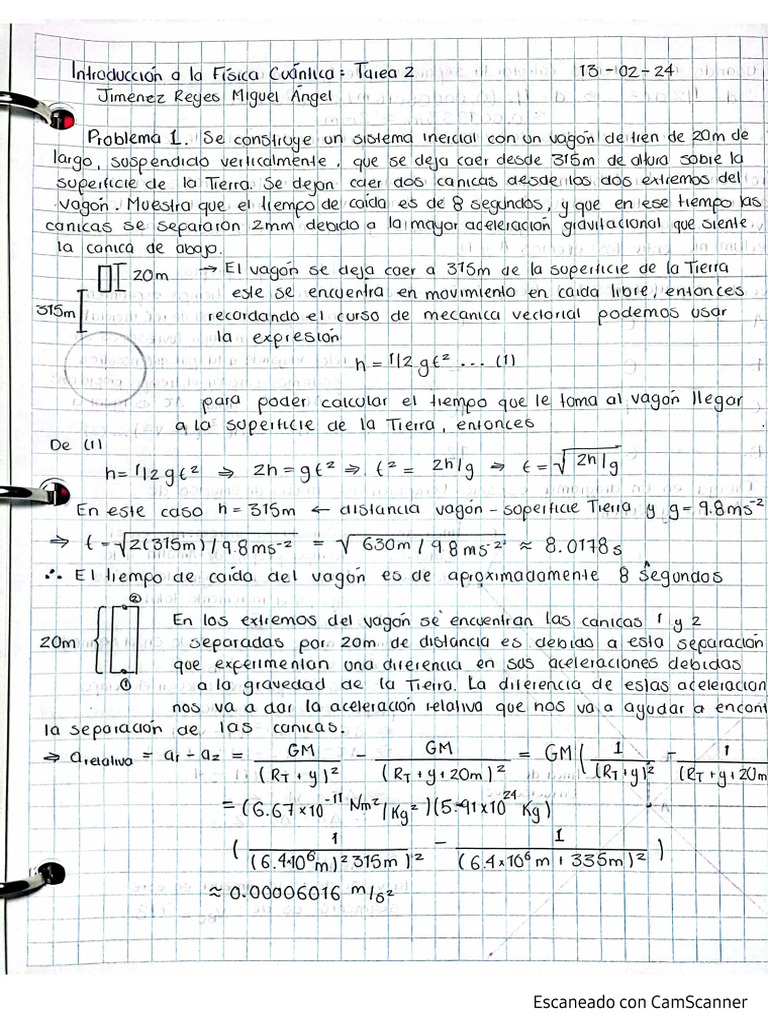 Introducción a la Física Cuántica: Tarea 2 13-02-24
Jiménez Reyes Miguel Ángel
Problema 1. Se construye un sistema inercial con un vagón de tren de 20m de
largo, suspendido verticalmente, que se deja caer desde 315m de altura sobre la
superficie de la Tierra. Se dejan caer dos canicas desde los dos extremos del
vagón. Muestra que el tiempo de caída es de 8 segundos, y que en ese tiempo las
canicas se separaron 2mm debido a la mayor aceleración gravitacional que siente
la canica de abajo.
20m → El vagón se deja caer a 315m de la superficie de la Tierra
este se encuentra en movimiento en caida libre, entonces
315m recordando el curso de mecanica vectorial podemos usar
la expresión
h = 1/2 gt² ... (1)
para poder calcular el tiempo que le toma al vagón llegar
a la superficie de la Tierra, entonces
De (1)
h = 1/2 gt² ⇒ 2h = gt² ⇒ t² = 2h/g ⇒ t = √2h/g
En este caso h = 315m ← distancia vagón - superficie Tierra y g = 9.8ms⁻²
⇒ t = √2(315m)/9.8ms⁻² = √630m/9.8ms⁻² ≈ 8.0178s
∴ El tiempo de caída del vagón es de aproximadamente 8 segundos
②
En los extremos del vagón se encuentran las canicas 1 y 2
20m separadas por 20m de distancia es debido a esta separación
que experimentan una diferencia en sus aceleraciones debidas
① a la gravedad de la Tierra. La diferencia de estas aceleracion
nos va a dar la aceleración relativa que nos va a ayudar a encont
la separación de las canicas.
⇒ a relativa = a₁ - a₂ = GM/(R_T + y)² - GM/(R_T + y + 20m)² = GM(1/(R_T + y)² - 1/(R_T + y + 20m
= (6.67×10⁻¹¹ Nm²/Kg²)(5.91×10²⁴ Kg)
(1/(6.4·10⁶m)² 315m)² - 1/(6.4×10⁶m + 335m)²)
≈ 0.00006016 m/s²
Escaneado con CamScanner